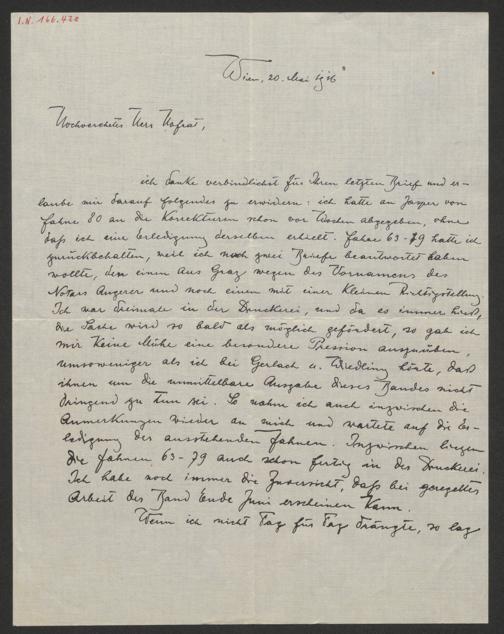 I.N. 166.422
Wien, 20. Mai 1916
Hochverehrter Herr Hofrat,
ich danke verbindlichst für Ihren letzten Brief und er-
laube mir darauf folgendes zu erwidern: ich hatte an Jasper von
Fahne 80 an die Korrekturen schon vor Wochen abgegeben, ohne
daß ich eine Erledigung derselben erhielt. Fahne 63-79 hatte ich
zurückbehalten, weil ich noch zwei Briefe beantwortet haben
wollte, den einen aus Graz wegen des Vornamens des
Notars Angerer und noch einen mit einer kleinen Richtigstellung
Ich war dreimal in der Druckerei, und da es immer hieß,
die Sache wird so bald als möglich gefördert, so gab ich
mir keine Mühe eine besondere Pression auszuüben,
umsoweniger als ich bei Gerlach u. Wiedling hörte, daß
ihnen um die unmittelbare Ausgabe dieses Bandes nicht
dringend zu tun sei. So nahm ich auch inzwischen die
Anmerkungen wieder an mich und wartete auf die Er-
ledigung der ausstehenden Fahnen. Inzwischen liegen
die Fahnen 63-79 auch schon fertig in der Druckerei.
Ich habe noch immer die Zuversicht, daß bei geregelter
Arbeit der Band Ende Juni erscheinen kann.
Wenn ich nicht Tag für Tag drängte, so lag